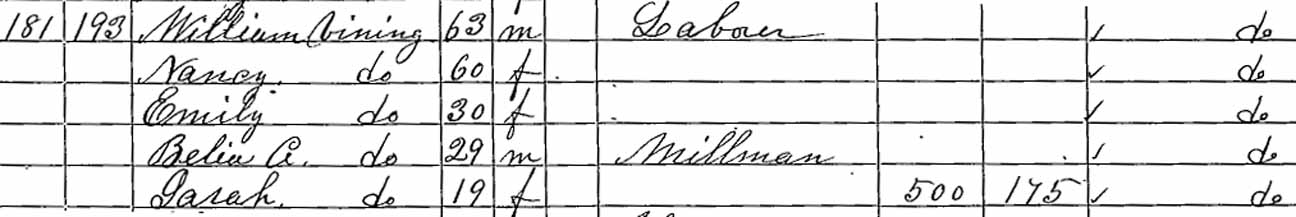 181 193 William Vining 63 m Labouer ✓ do
Nancy. do 60 f ✓ do
Emily do 30 f ✓ do
Belia A. do 29 m Millman ✓ do
Sarah. do 19 f 500 175 ✓ do